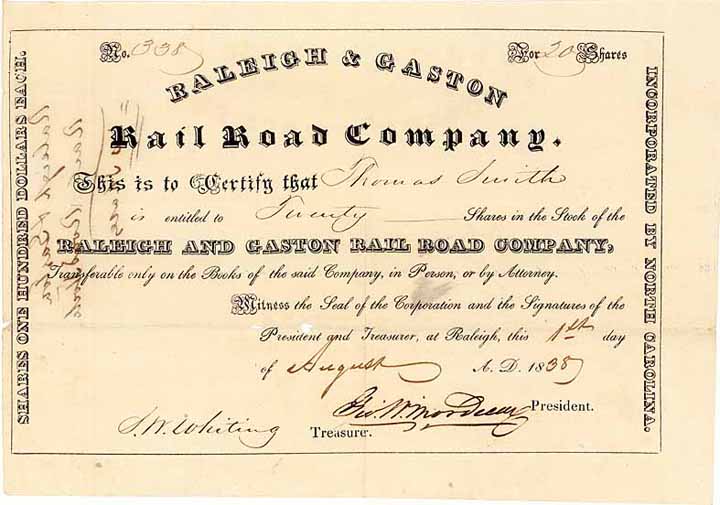 No. 338 For 20 Shares
RALEIGH & GASTON
Rail Road Company.
This is to Certify that Thomas Smith
is entitled to Twenty Shares in the Stock of the
RALEIGH AND GASTON RAIL ROAD COMPANY,
Transferable only on the Books of the said Company, in Person, or by Attorney.
Witness the Seal of the Corporation and the Signatures of the
President and Treasurer, at Raleigh, this 1st day
of August A. D. 1838
President.
S. W. Whiting Treasurer.
SHARES ONE HUNDRED DOLLARS EACH.
INCORPORATED BY NORTH CAROLINA.
Raleigh & Gaston
Rail Road